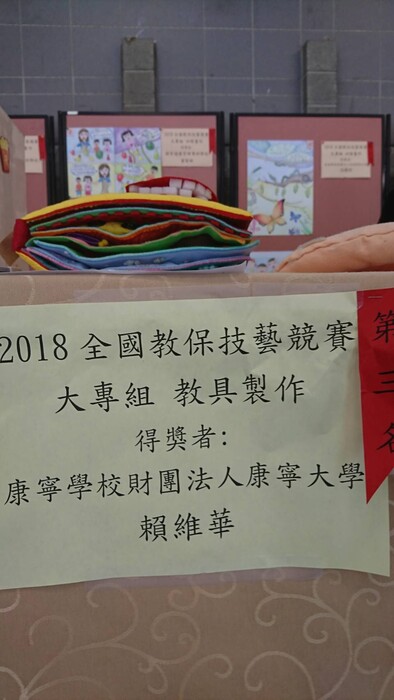 2018 全國教保技藝競賽
大專組 教具製作
得獎者:
康寧學校財團法人康寧大學
賴維華
第三名